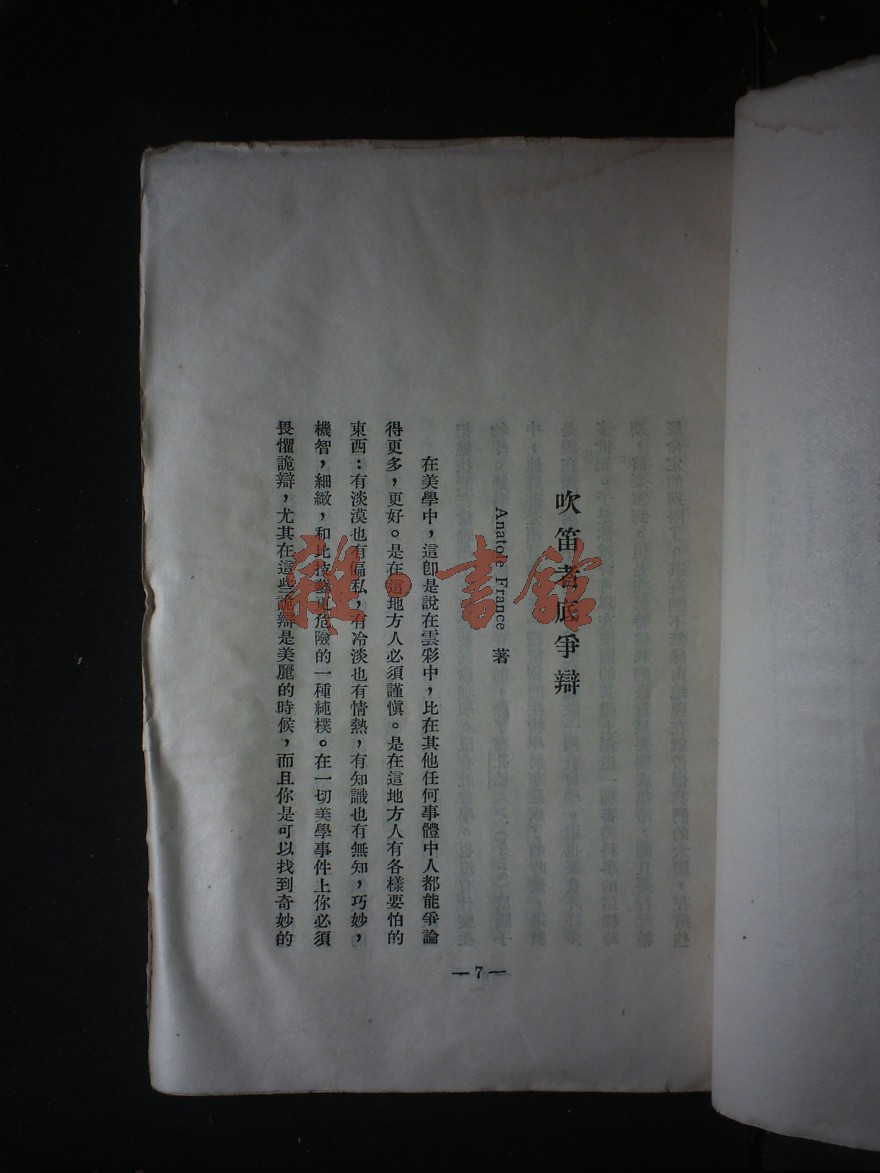 吹笛者底爭辯
Anatole France 著
在美學中，這卽是說在雲彩中，比在其他任何事體中人都能爭論
得更多，更好。是在這地方人必須謹愼。是在這地方人有各樣要怕的
東西：有淡漠也有偏私，有冷淡也有情熱，有知識也有無知，巧妙，
機智，細緻，和比技藝更危險的一種純樸。在一切美學事件上你必須
畏懼詭辯，尤其在這些詭辯是美麗的時候，而且你是可以找到奇妙的
—7—
雜·書館